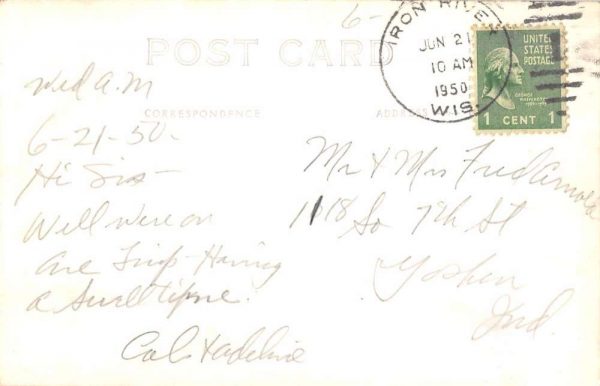 6-
POST CARD
IRON RIVER
JUN 21
10 AM
1950
WIS.
UNITED
STATES
POSTAGE
GEORGE
WASHINGTON
1 CENT 1
CORRESPONDENCE
ADDRESS
Wed A.M
6-21-50.
Hi Sis-
Well were on
our Trip-Having
a Swell time.
Cal &
Mr & Mrs Fred Arnold
1118 So 7th St
Goshen
Ind.